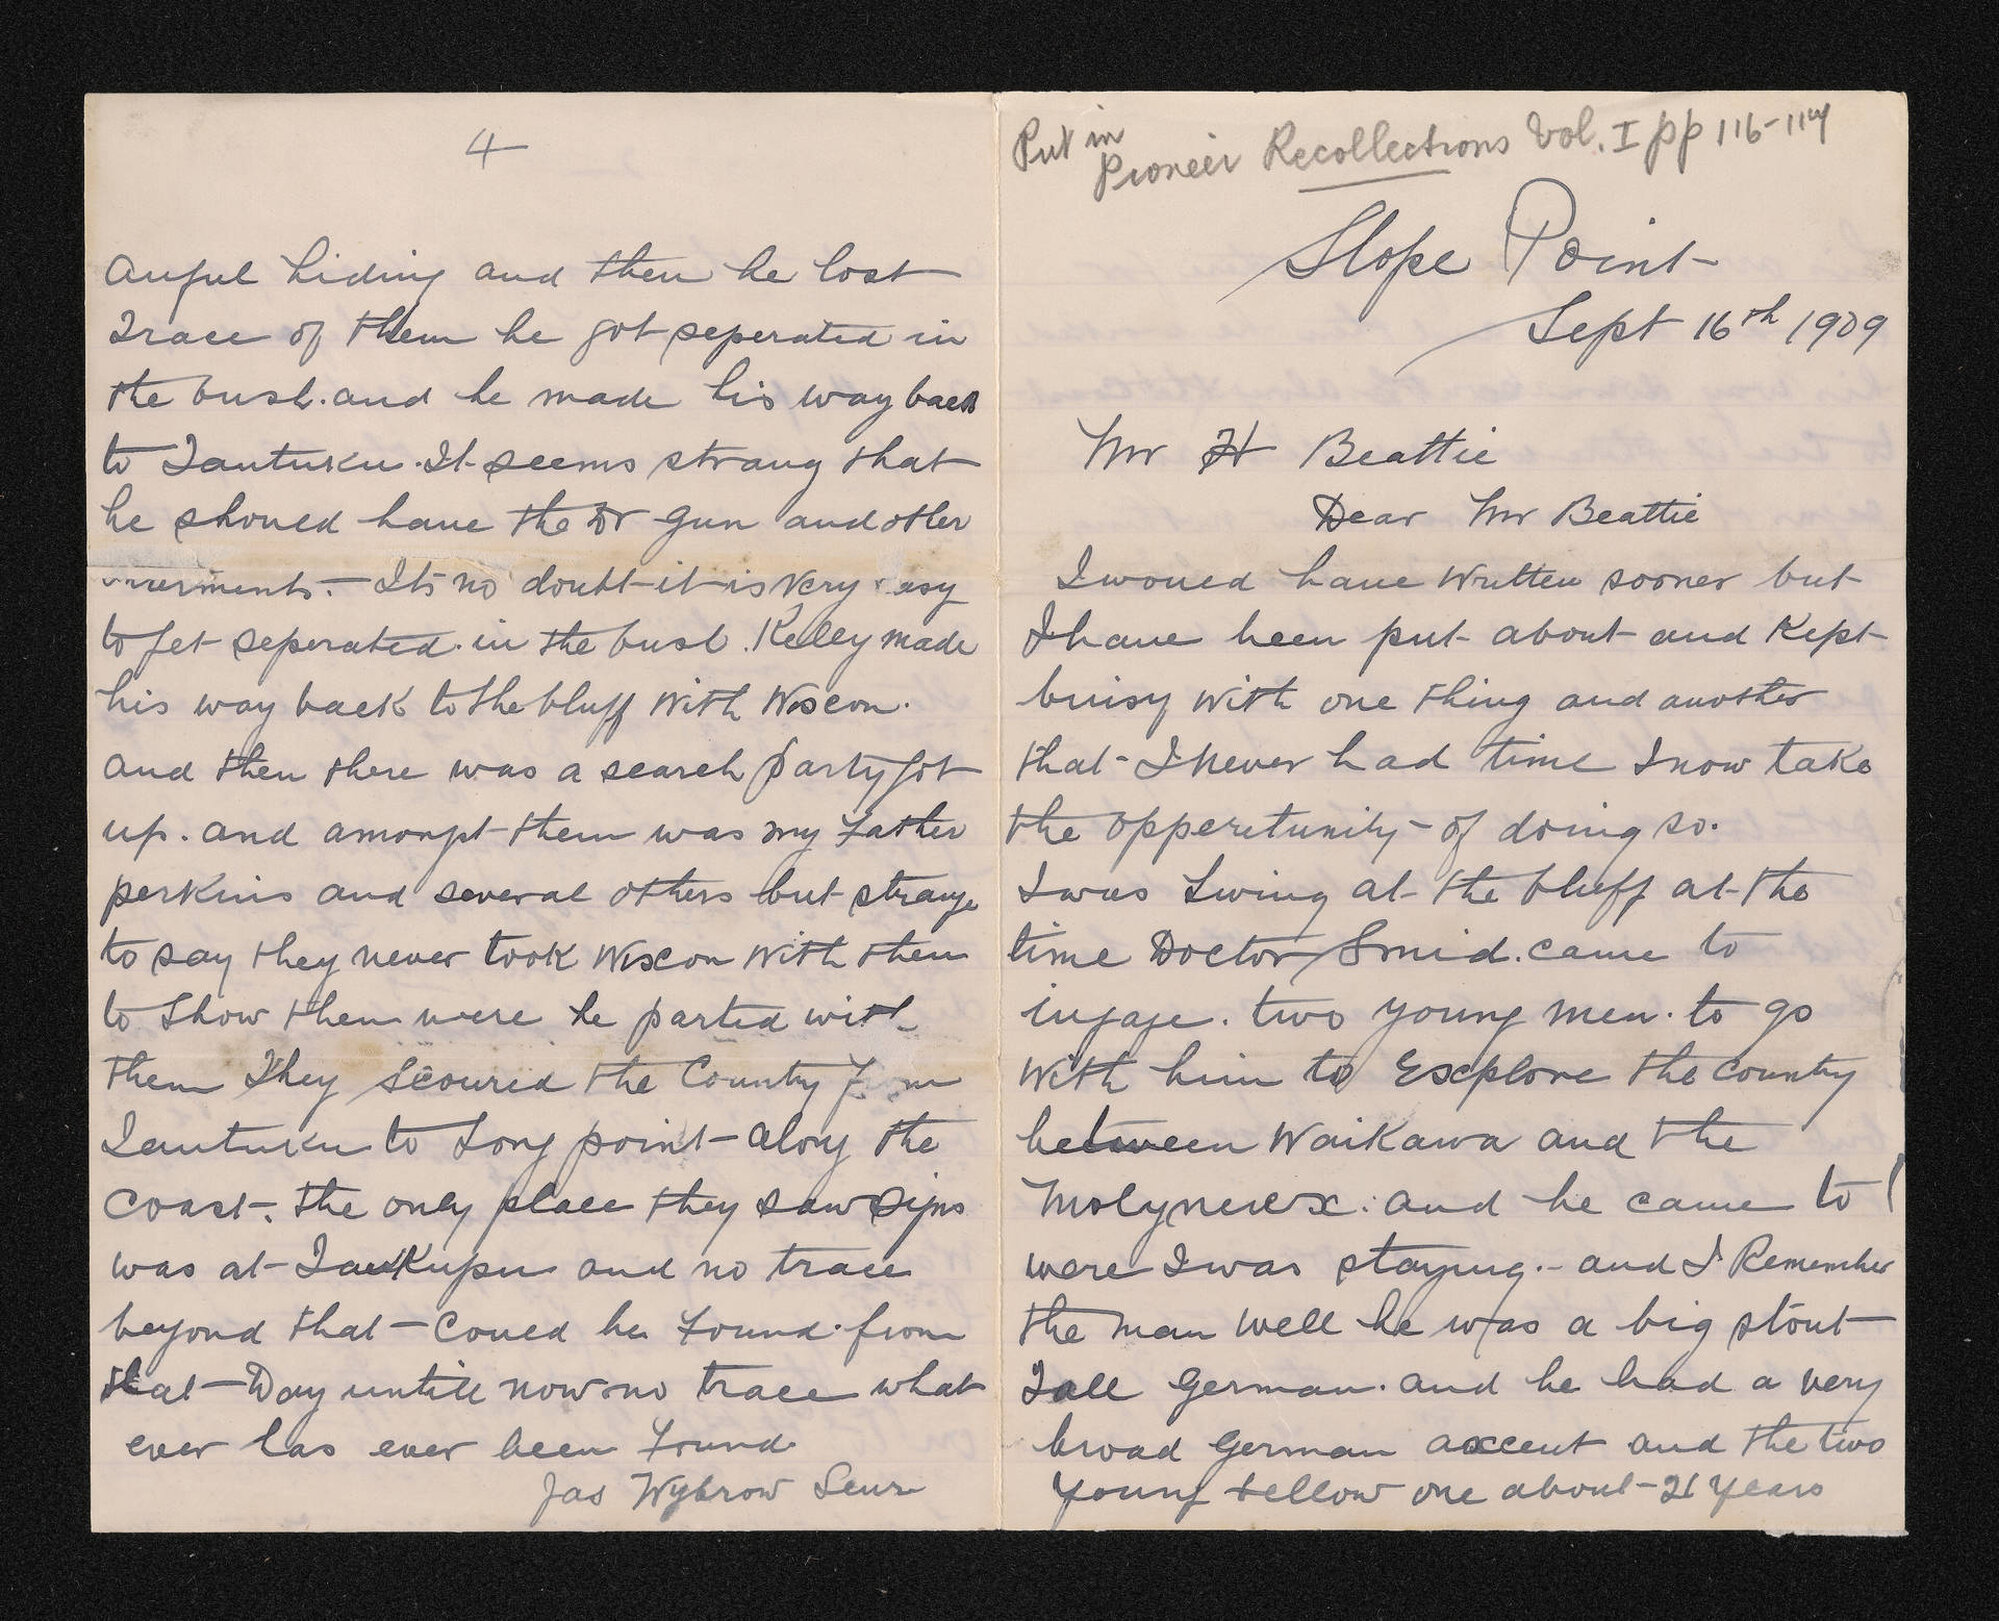 4
awful hiding and then he lost
Trace of them he got seperated in
the bush. and he made his way back
to Tautuku. It seems strang that
he shoued have the Dr gun and other
- Its no doubt it is very easy
to get seperated. in the bush. Kelley made
his way back to the bluff with Wiscon.
and then there was a search party got
up. and amongst them was my Father
perkins and several others but strange
to say they never took Wiscon with them
to show them were he parted with
them They scoured the Country from
Tautuku to Long point along the
Coast. the only place they saw signs
was at and no trace
beyond that - Coued be Found. from
that - Day untill now no trace what
ever has ever been Found.
Jas Wybrow Senr
Put in
Pioneer Recollections Vol. I pp 116-117
Slope Point
Sept 16th 1909
Mr H Beattie
Dear Mr Beattie
I woued have written sooner but
I have been put about and Kept
buisy with one thing and another
that - I never had time I now take
the opperitunity - of doing so.
I was Living at the bluff at the
time Doctor Smid. came to
ingage. two young men. to go
with him to Esxplore the country
between Waikawa and the
Molyneux. and he came to
were I was staying. - and I Remember
the man well he was a big stout
Tall german. and he had a very
broad german axcent and the two
young Fellow one about - 21 years